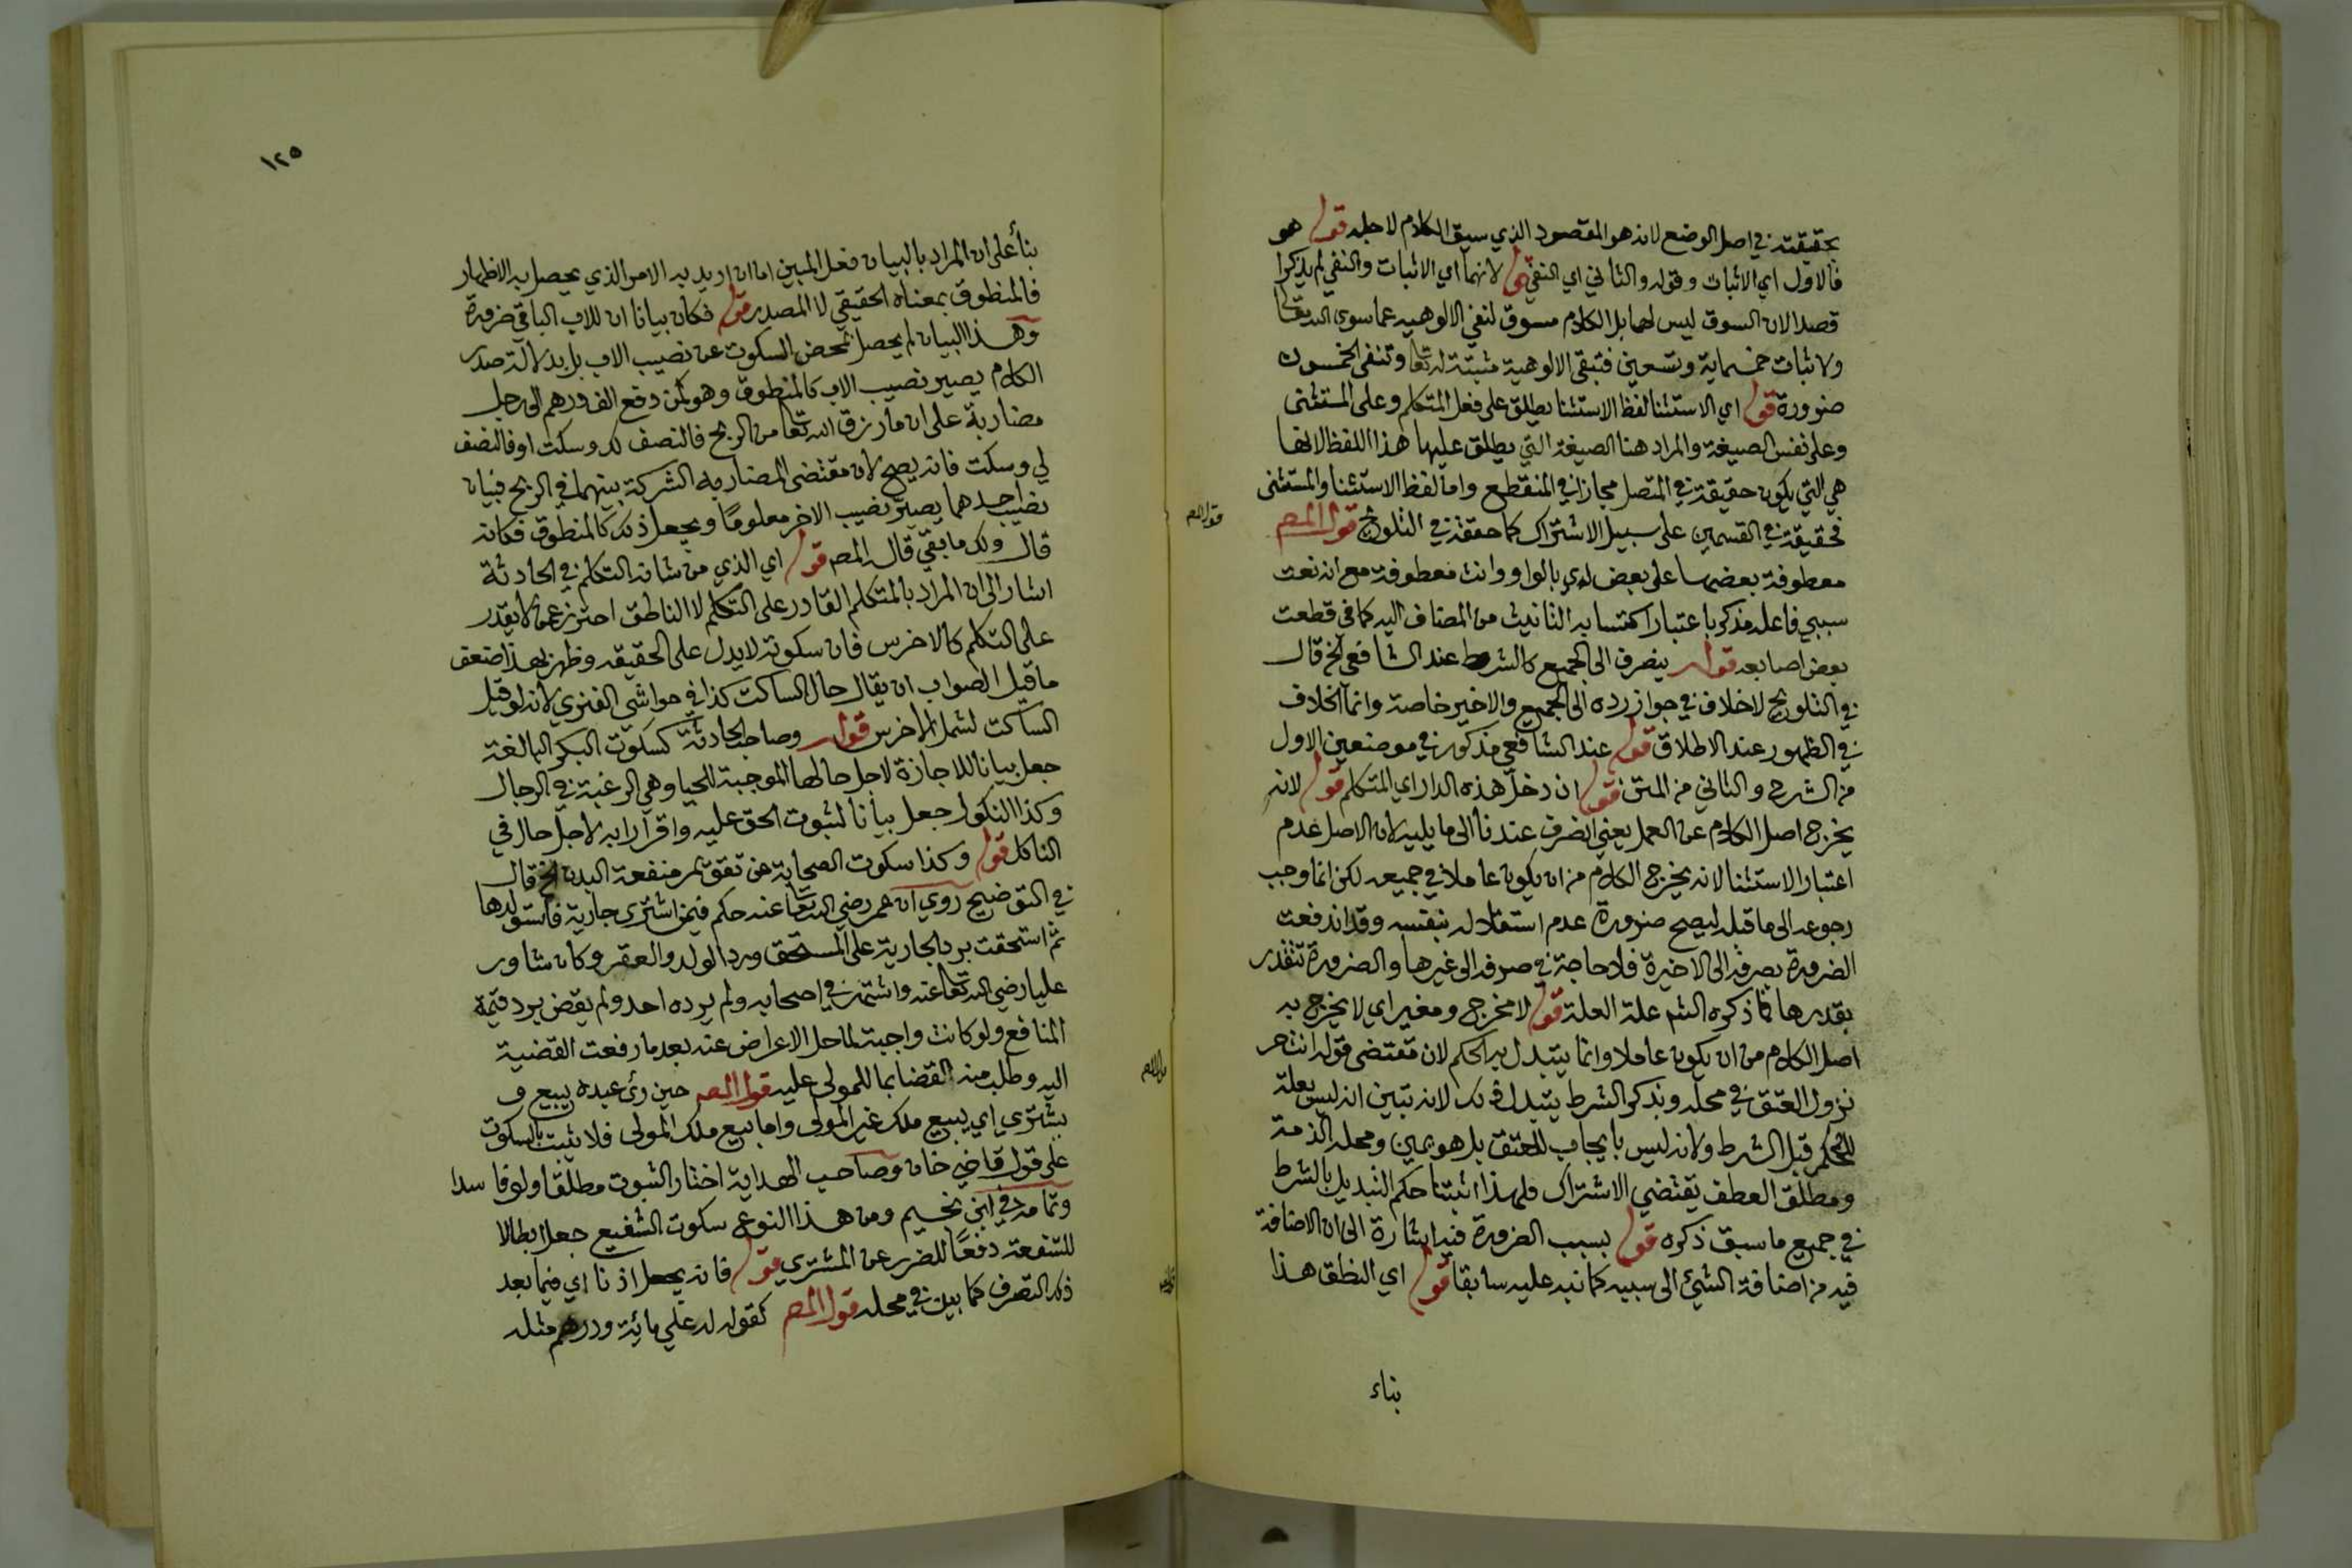 بحقيقته في اصل الوضع لانه هو المقصود الذي سيق الكلام لاجله قوله هو
فالاول اي الاثبات وقوله والثاني اي النفي قوله لانهما اي الاثبات والنفي لم يذكرا
قصدا لان السوق ليس لهما بل الكلام مسوق لنفي الالوهية عما سوى الله تعالى
ولاثبات خمسماية وتسعين فتبقى الالوهية مثبتة له تعالى وتنفى الخمسون
ضرورة قوله اي الاستثنا لفظ الاستثنا يطلق على فعل المتكلم وعلى المستثنى
وعلى نفس الصيغة والمراد هنا الصيغة التي يطلق عليها هذا اللفظ لانها
هي التي يكون حقيقة في المتصل مجازا في المنقطع واما لفظ الاستثنا والمستثنى
فحقيقة في القسمين على سبيل الاشتراك كما حققه في التلويح قول المص
قول المص
معطوفة بعضها على بعض اي بالواو وانث معطوفة مع انه نعت
سببي فاعله مذكر باعتبار اكتسابه التانيث من المضاف اليه كما في قطعت
بعض اصابعه قوله ينصرف الى الجميع كالشرط عند الشافعي الخ قال
في التلويح لاخلاف في جواز رده الى الجميع والاخير خاصة وانما الخلاف
في الظهور عند الاطلاق قوله عند الشافعي مذكور في موضعين الاول
من الشرح والثاني من المتن قوله ان دخل هذه الدار اي المتكلم قوله لانه
يخرج اصل الكلام عن العمل يعني انصرف عندنا الى ما يليه لان الاصل عدم
اعتبار الاستثنا لانه يخرج الكلام من ان يكون عاملا في جميعه لكن انما وجب
رجوعه الى ما قبله ليصح ضرورة عدم استقلاله بنفسه وقد اندفعت
الضرورة بصرفه الى الاخيرة فلا حاجة في صرفه الى غيرها والضرورة تتقدر
بقدرها فما ذكره الشم علة العلة قوله لا مخرج ومغير اي لا يخرج به
اصل الكلام من ان يكون عاملا وانما يتبدل به الحكم لان مقتضى قوله انت حر
نزول العتق في محله وبذكر الشرط يتبدل ذلك لانه تبين انه ليس بعلة
للحكم قبل الشرط ولانه ليس بايجاب للعتق بل هو يمين ومحله الذمة
ومطلق العطف يقتضي الاشتراك فلهذا اثبتنا حكم التبديل بالشرط
في جميع ما سبق ذكره قوله بسبب الضرورة فيه اشارة الى ان الاضافة
فيه من اضافة الشيء الى سببه كما نبه عليه سابقا قوله اي النطق هذا
بناء
١٢٥
بنأ على ان المراد بالبيان فعل المبين اما ان اريد به الامر الذي يحصل به الاظهار
فالمنطوق بمعناه الحقيقي لا المصدر قوله فكان بيانا ان للاب الباقي ضرورة
وهذا البيان لم يحصل بمحض السكوت عن نصيب الاب بل بدلالة صدر
الكلام يصير نصيب الاب كالمنطوق وهو كمن دفع الف درهم الى رجل
مضاربة على ان ما رزق الله تعالى من الربح فالنصف لك وسكت او فالنصف
لي وسكت فانه يصح لان مقتضى المضاربه الشركة بينهما في الربح فبيان
نصيب احدهما يصير نصيب الاخر معلوما ويجعل ذلك كالمنطوق فكانه
قال ولك ما بقي قال المص قوله اي الذي من شانه التكلم في الحادثة
اشار الى ان المراد بالمتكلم القادر على التكلم لا الناطق احترز عما لا يقدر
على التكلم كالاخرس فان سكوته لا يدل على الحقيقه وظهر بهذا ضعف
ما قيل الصواب ان يقال حال الساكت كذا في حواشي الفنري لانه لو قيل
الساكت لشمل الاخرس قوله وصاحب الحادثة كسكوت البكر البالغة
جعل بيانا للاجازة لاجل حالها الموجبة للحيا وهي الرغبة في الرجال
وكذا النكول جعل بيانا لثبوت الحق عليه واقرارا به لاجل حال في
الناكل قوله وكذا سكوت الصحابة عن تقويم منفعة البدن الخ قال
في التوضيح روي ان عمر رضي الله تعالى عنه حكم فيمن اشترى جارية فاستولدها
ثم استحقت برد الجارية على المستحق ورد الولد والعقر وكان شاور
عليا رضي الله تعالى عنه واشتهر في اصحابه ولم يرده احد ولم يقض برد قيمة
المنافع ولو كانت واجبة لما حل الاعراض عنه بعد ما رفعت القضية
اليه وطلب منه القضا بما للمولى عليه قول المص حين رأى عبده يبيع و
يشتري اي يبيع ملك غير المولى واما بيع ملك المولى فلا يثبت بالسكوت
على قول قاضي خان وصاحب الهداية اختار الثبوت مطلقا ولو فاسدا
وتمامه في ابن نجيم ومن هذا النوع سكوت الشفيع جعل ابطالا
للشفعة دفعا للضرر عن المشتري قوله فانه يجعل اذنا اي فيما بعد
ذلك التصرف كما بين في محله قول المص كقوله له علي مائة ودرهم مثله